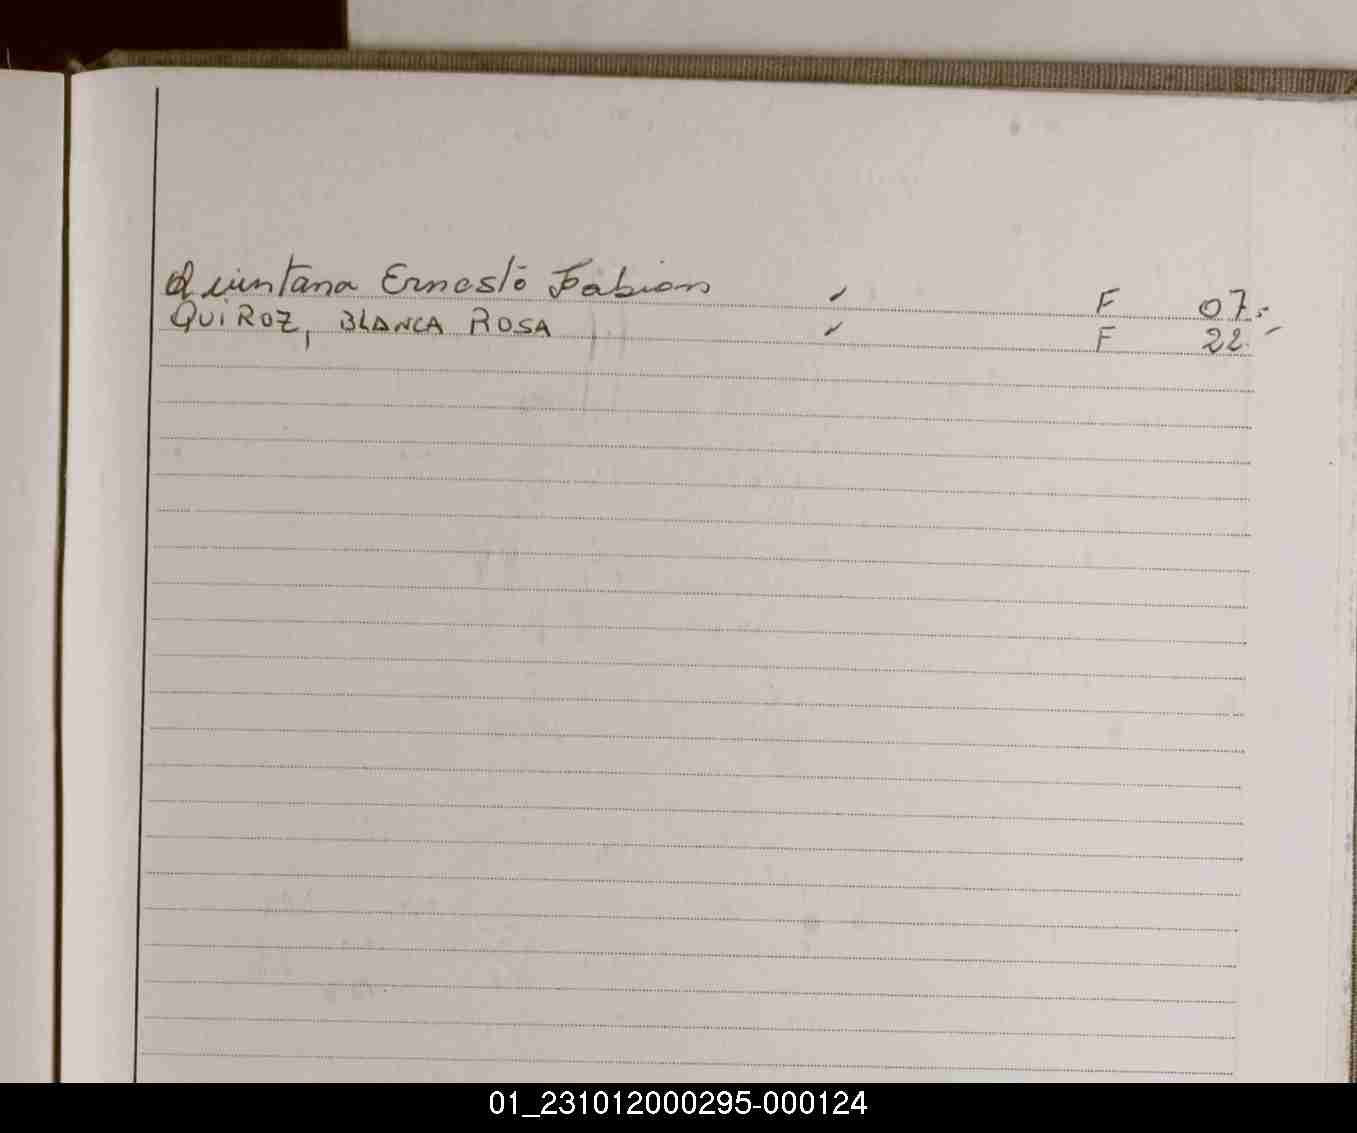 Quintana Ernesto Fabian ✓ F 07.-
QUIROZ, BLANCA ROSA ✓ F 22.-
01_231012000295-000124